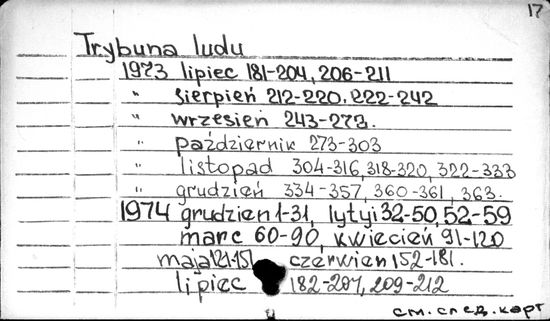 17
Trybuna ludu
1973 lipiec 181-204, 206-211
" sierpień 212-220, 222-242
" wrzesień 243-273.
" październik 273-303
" listopad 304-316, 318-320, 322-333
" grudzień 334-357, 360-361, 363.
1974 grudzien 1-31, lytyi 32-50, 52-59
marc 60-90, kwiecień 91-120
maja 121-151 czerwien 152-181.
lipiec 182-207, 209-212
см. спед. карт